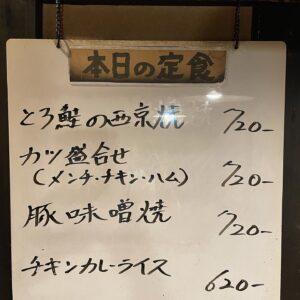 本日の定食
とろ鮭の西京焼 720-
カツ盛合せ
(メンチ・チキン・ハム) 720-
豚味噌焼 720-
チキンカレーライス 620-